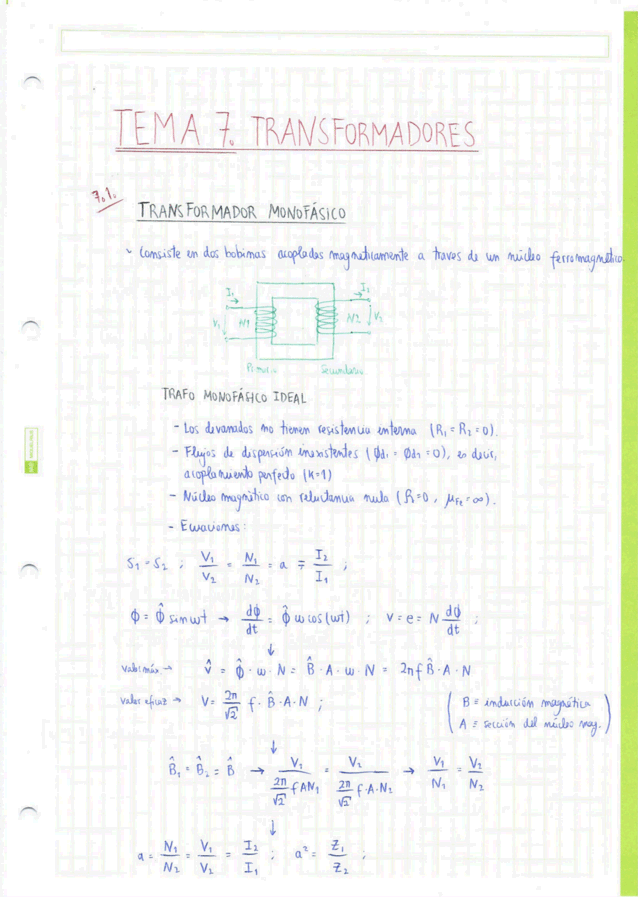 TEMA 7. TRANSFORMADORES
7.1.
TRANSFORMADOR MONOFÁSICO
~ Consiste en dos bobinas acopladas magneticamente a traves de un núcleo ferromagnético.
I₁ I₂
V₁ N1 N2 V₂
Primario Secundario
TRAFO MONOFÁSICO IDEAL
- Los devanados no tienen resistencia interna (R₁ = R₂ = 0).
- Flujos de dispersión inexistentes (ϕd₁ = ϕd₂ = 0), es decir,
acoplamiento perfecto (K=1)
- Núcleo magnético con reluctancia nula (R=0, μFe = ∞).
- Ecuaciones:
S₁ = S₂ ; V₁/V₂ = N₁/N₂ = a = I₂/I₁ ;
ϕ = ϕ̂ sin wt → dϕ/dt = ϕ̂ w cos(wt) ; V = e = N dϕ/dt ;
↓
valor máx → V̂ = ϕ̂ · w · N = B̂ · A · w · N = 2π f B̂ · A · N
valor eficaz → V = 2π/√2 f · B̂ · A · N ; (B ≡ inducción magnética
A ≡ sección del núcleo mag.)
↓
B̂₁ = B̂₂ = B̂ → V₁/(2π/√2 f A N₁) = V₂/(2π/√2 f · A · N₂) → V₁/N₁ = V₂/N₂
↓
a = N₁/N₂ = V₁/V₂ = I₂/I₁ ; a² = Z₁/Z₂ ;